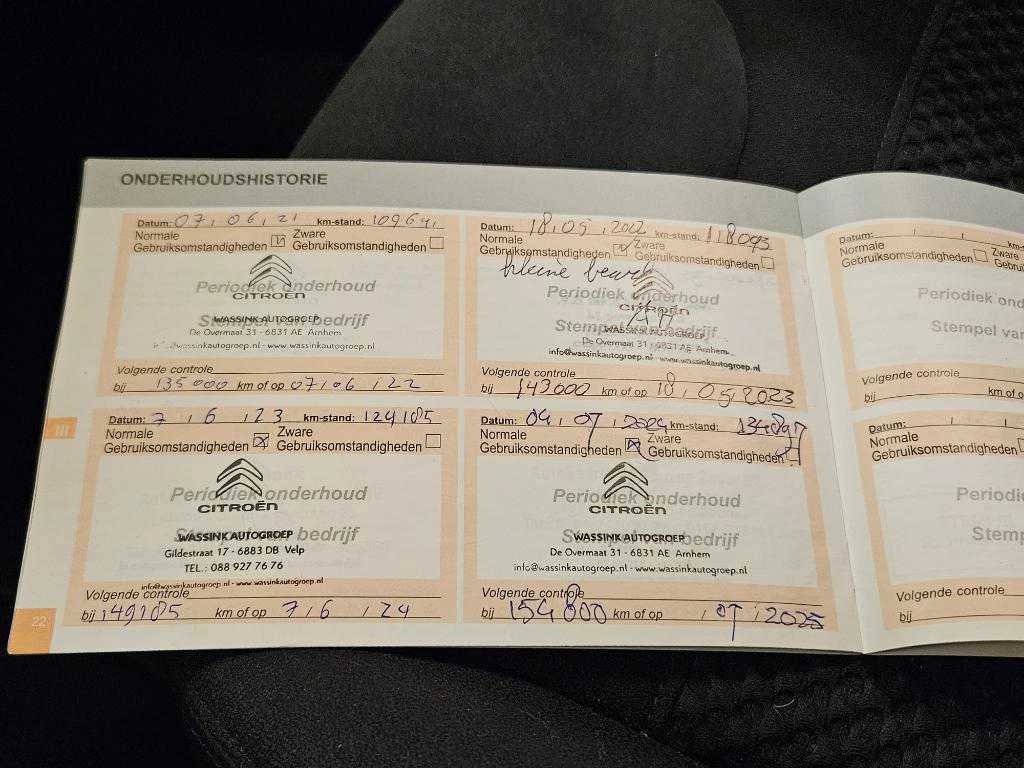 ONDERHOUDSHISTORIE
Datum: 07, 06, 21 km-stand: 109641
Normale Gebruiksomstandigheden Zware Gebruiksomstandigheden
Periodiek onderhoud
CITROËN
Stempel van bedrijf
WASSINK AUTOGROEP
De Overmaat 31 - 6831 AE Arnhem
@wassinkautogroep.nl - www.wassinkautogroep.nl
Volgende controle
bij 135000 km of op 07, 06, 22
Datum: 18, 05, 2022 km-stand: 118093
Normale Gebruiksomstandigheden Zware Gebruiksomstandigheden
kleine beurt
Periodiek onderhoud
CITROËN
Stempel van bedrijf
WASSINK AUTOGROEP
De Overmaat 31 - 6831 AE Arnhem
info@wassinkautogroep.nl - www.wassinkautogroep.nl
Volgende controle
bij 143000 km of op 18, 05, 2023
Datum: 7, 6, 23 km-stand: 124185
Normale Gebruiksomstandigheden Zware Gebruiksomstandigheden
Periodiek onderhoud
CITROËN
Stempel van bedrijf
WASSINK AUTOGROEP
Gildestraat 17 - 6883 DB Velp
TEL.: 088 927 76 76
info@wassinkautogroep.nl - www.wassinkautogroep.nl
Volgende controle
bij 149185 km of op 7, 6, 24
Datum: 04, 07, 2024 km-stand: 134897
Normale Gebruiksomstandigheden Zware Gebruiksomstandigheden
Periodiek onderhoud
CITROËN
Stempel van bedrijf
WASSINK AUTOGROEP
De Overmaat 31 - 6831 AE Arnhem
info@wassinkautogroep.nl - www.wassinkautogroep.nl
Volgende controle
bij 154000 km of op , 07, 2025
NL
22
Datum: , , km-
Normale Gebruiksomstandigheden Zware
Periodiek
Stempel van
Volgende controle
bij km o
Datum: , ,
Normale Gebruiksomstandigheden
Period
Stemp
Volgende controle
bij